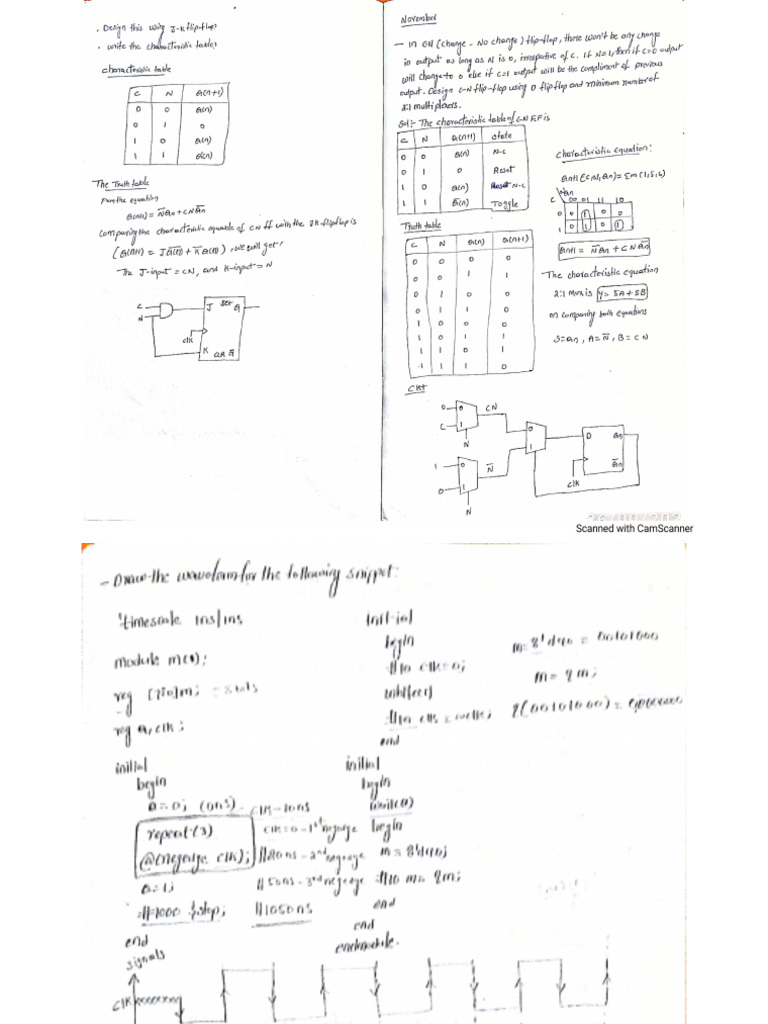 . Design this using J-K flip-flop?
. write the characteristic table?
characteristic table
C N Q(n+1)
0 0 Q(n)
0 1 0
1 0 Q(n)
1 1 Q̅(n)
The Truth table
From the equation
Q(n+1) = N̅Qn + CNQ̅n
Comparing the characteristic equation of CN ff with the JK flipflop is
(Q(n+1) = JQ̅(n) + K̅Q(n)) we will get!
The J-input = CN, and K-input = N
C
N
J SET Q
clk
K CLR Q̅
November
- In CN (change - No change) flip-flop, there won't be any change
in output as long as N is 0, irrespective of C. If N=1, then if C=0 output
will change to 0 else if C=1 output will be the compliment of previous
output. Design C-N flip-flop using D flipflop and minimum number of
2:1 multiplexers.
Sol:- The characteristic table of C-N F.F is
C N Q(n+1) State
0 0 Q(n) N-C
0 1 0 Reset
1 0 Q(n) N-C
1 1 Q̅(n) Toggle
characteristic equation:
Qn+1 (C,N,Qn) = Σm(1,5,6)
C 00 01 11 10
0 0 1 0 0
1 0 1 0 1
Qn+1 = N̅Qn + CNQ̅n
Truth table
C N Q(n) Q(n+1)
0 0 0 0
0 0 1 1
0 1 0 0
0 1 1 0
1 0 0 0
1 0 1 1
1 1 0 1
1 1 1 0
The characteristic equation
2:1 Mux is Y = S̅A + SB
on comparing both equations
S = Qn, A = N̅, B = CN
CKT
0 0 CN
C 1
N
1 0 N̅
0 1
N
0
1
D Qn
Q̅n
clk
Scanned with CamScanner
- Draw the waveform for the following snippet:
'timescale 1ns/1ns
module m();
reg [7:0]m;
reg a, clk;
initial
begin
a=0; (0ns)
repeat(3)
@(negedge clk);
a=1;
#1000 $stop;
end
clk-10ns
clk=0-1st negedge
//30ns-2nd negedge
//50ns-3rd negedge
//1050ns
initial
begin
#10 clk=0;
end
initial
begin
begin
m=8'd40;
#10 m= 2m;
end
end
endmodule.
m=8'd40 = 00101000
m= 2m;
signals
clk